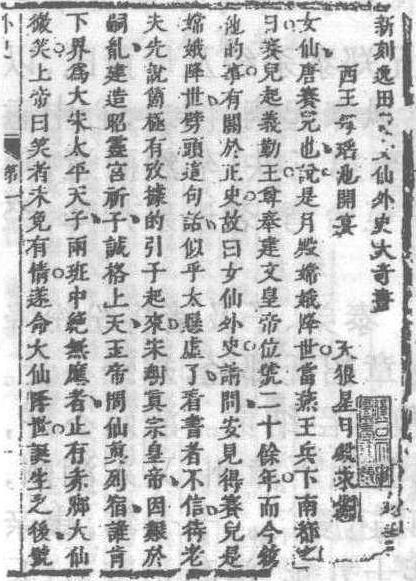 新刻逸田仙外史大奇書
西王母瑤池開宴 天狼星月殿求
女仙唐賽兒也說是月殿嫦娥降世當燕王兵下南都之
日賽兒起義勤王尊奉建文皇帝位號二十餘年而今敘
他的事有關於正史故曰女仙外史請問安見得賽兒是
嫦娥降世劈頭這句話似乎太懸虛了看書者不信待老
夫先說箇極有攷據的引子起來宋朝真宗皇帝因艱於
嗣胤建造昭靈宮祈子誠格上天玉帝問仙眞列宿誰肯
下界爲大宋太平天子兩班中絶無應者止有赤腳大仙
微笑上帝曰笑者未免有情遂命大仙降世誕生之後號
外史 第一